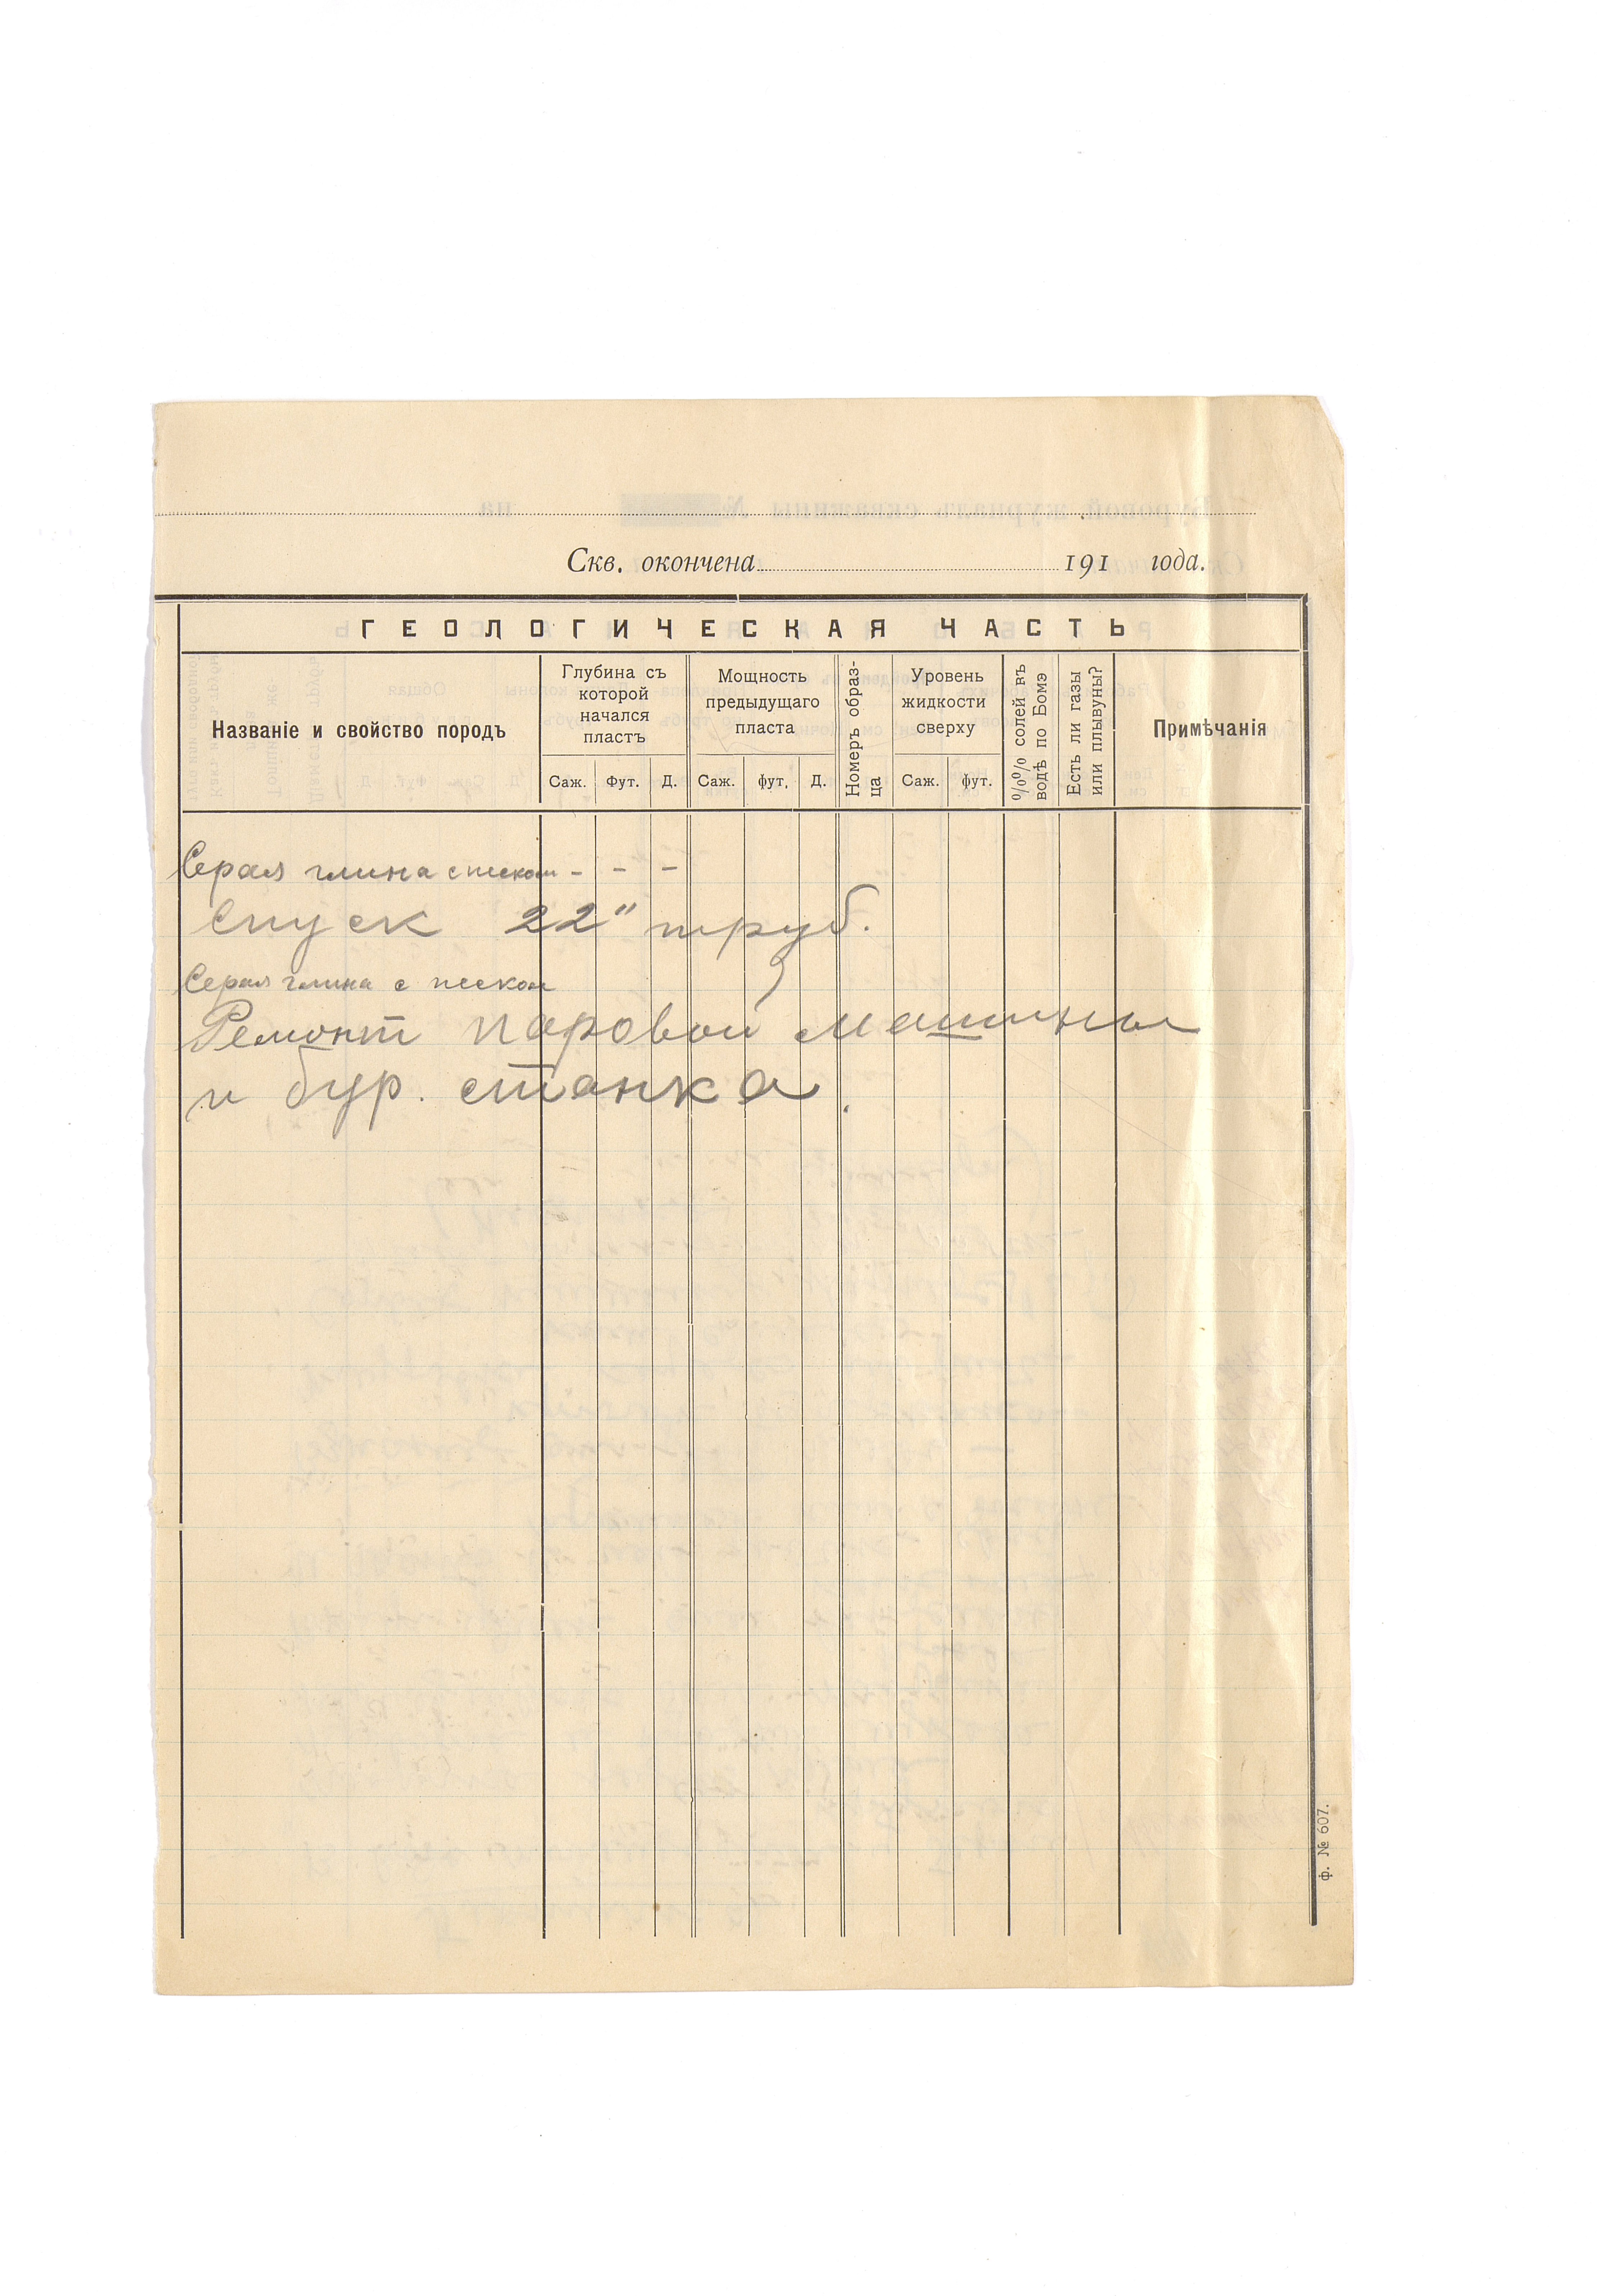 Скв. окончена 191 года.
ГЕОЛОГИЧЕСКАЯ ЧАСТЬ
Названіе и свойство породъ
Глубина съ
которой
начался
пластъ
Саж. Фут. Д.
Мощность
предыдущаго
пласта
Саж. фут. Д.
Номеръ образ-
ца
Уровень
жидкости
сверху
Саж. фут.
%% солей въ
водѣ по Бомэ
Есть ли газы
или плывуны?
Примѣчанія
Серая глина с песком - - -
Спуск 22" труб.
Серая глина с песком
Ремонт паровой машины
и бур. станка.
ф. № 607.